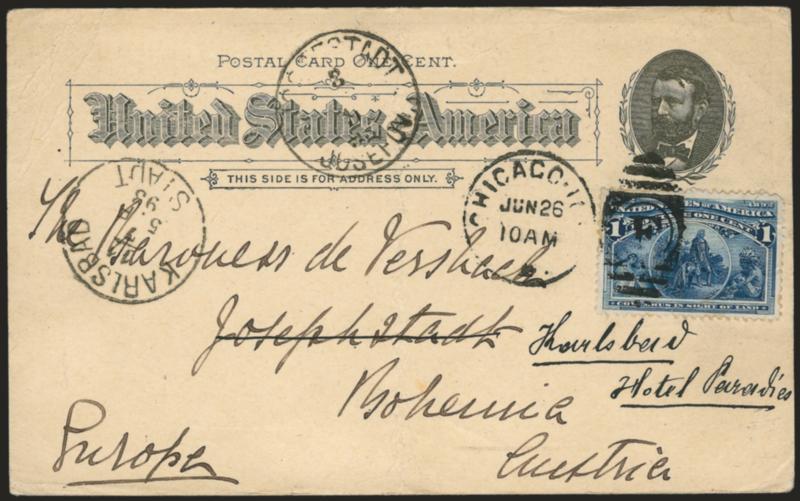 POSTAL CARD ONE CENT.
United States America
THIS SIDE IS FOR ADDRESS ONLY.
JOSEFSTADT
8
JOSEFOV
KARLSBAD
STADT
5
93
CHICAGO, ILL
JUN 26
10 AM
UNITED STATES OF AMERICA
1 ONE CENT 1
COLUMBUS IN SIGHT OF LAND
The Baroness de
Josephstadt Karlsbad
Hotel Paradies
Bohemia
Europa Austria